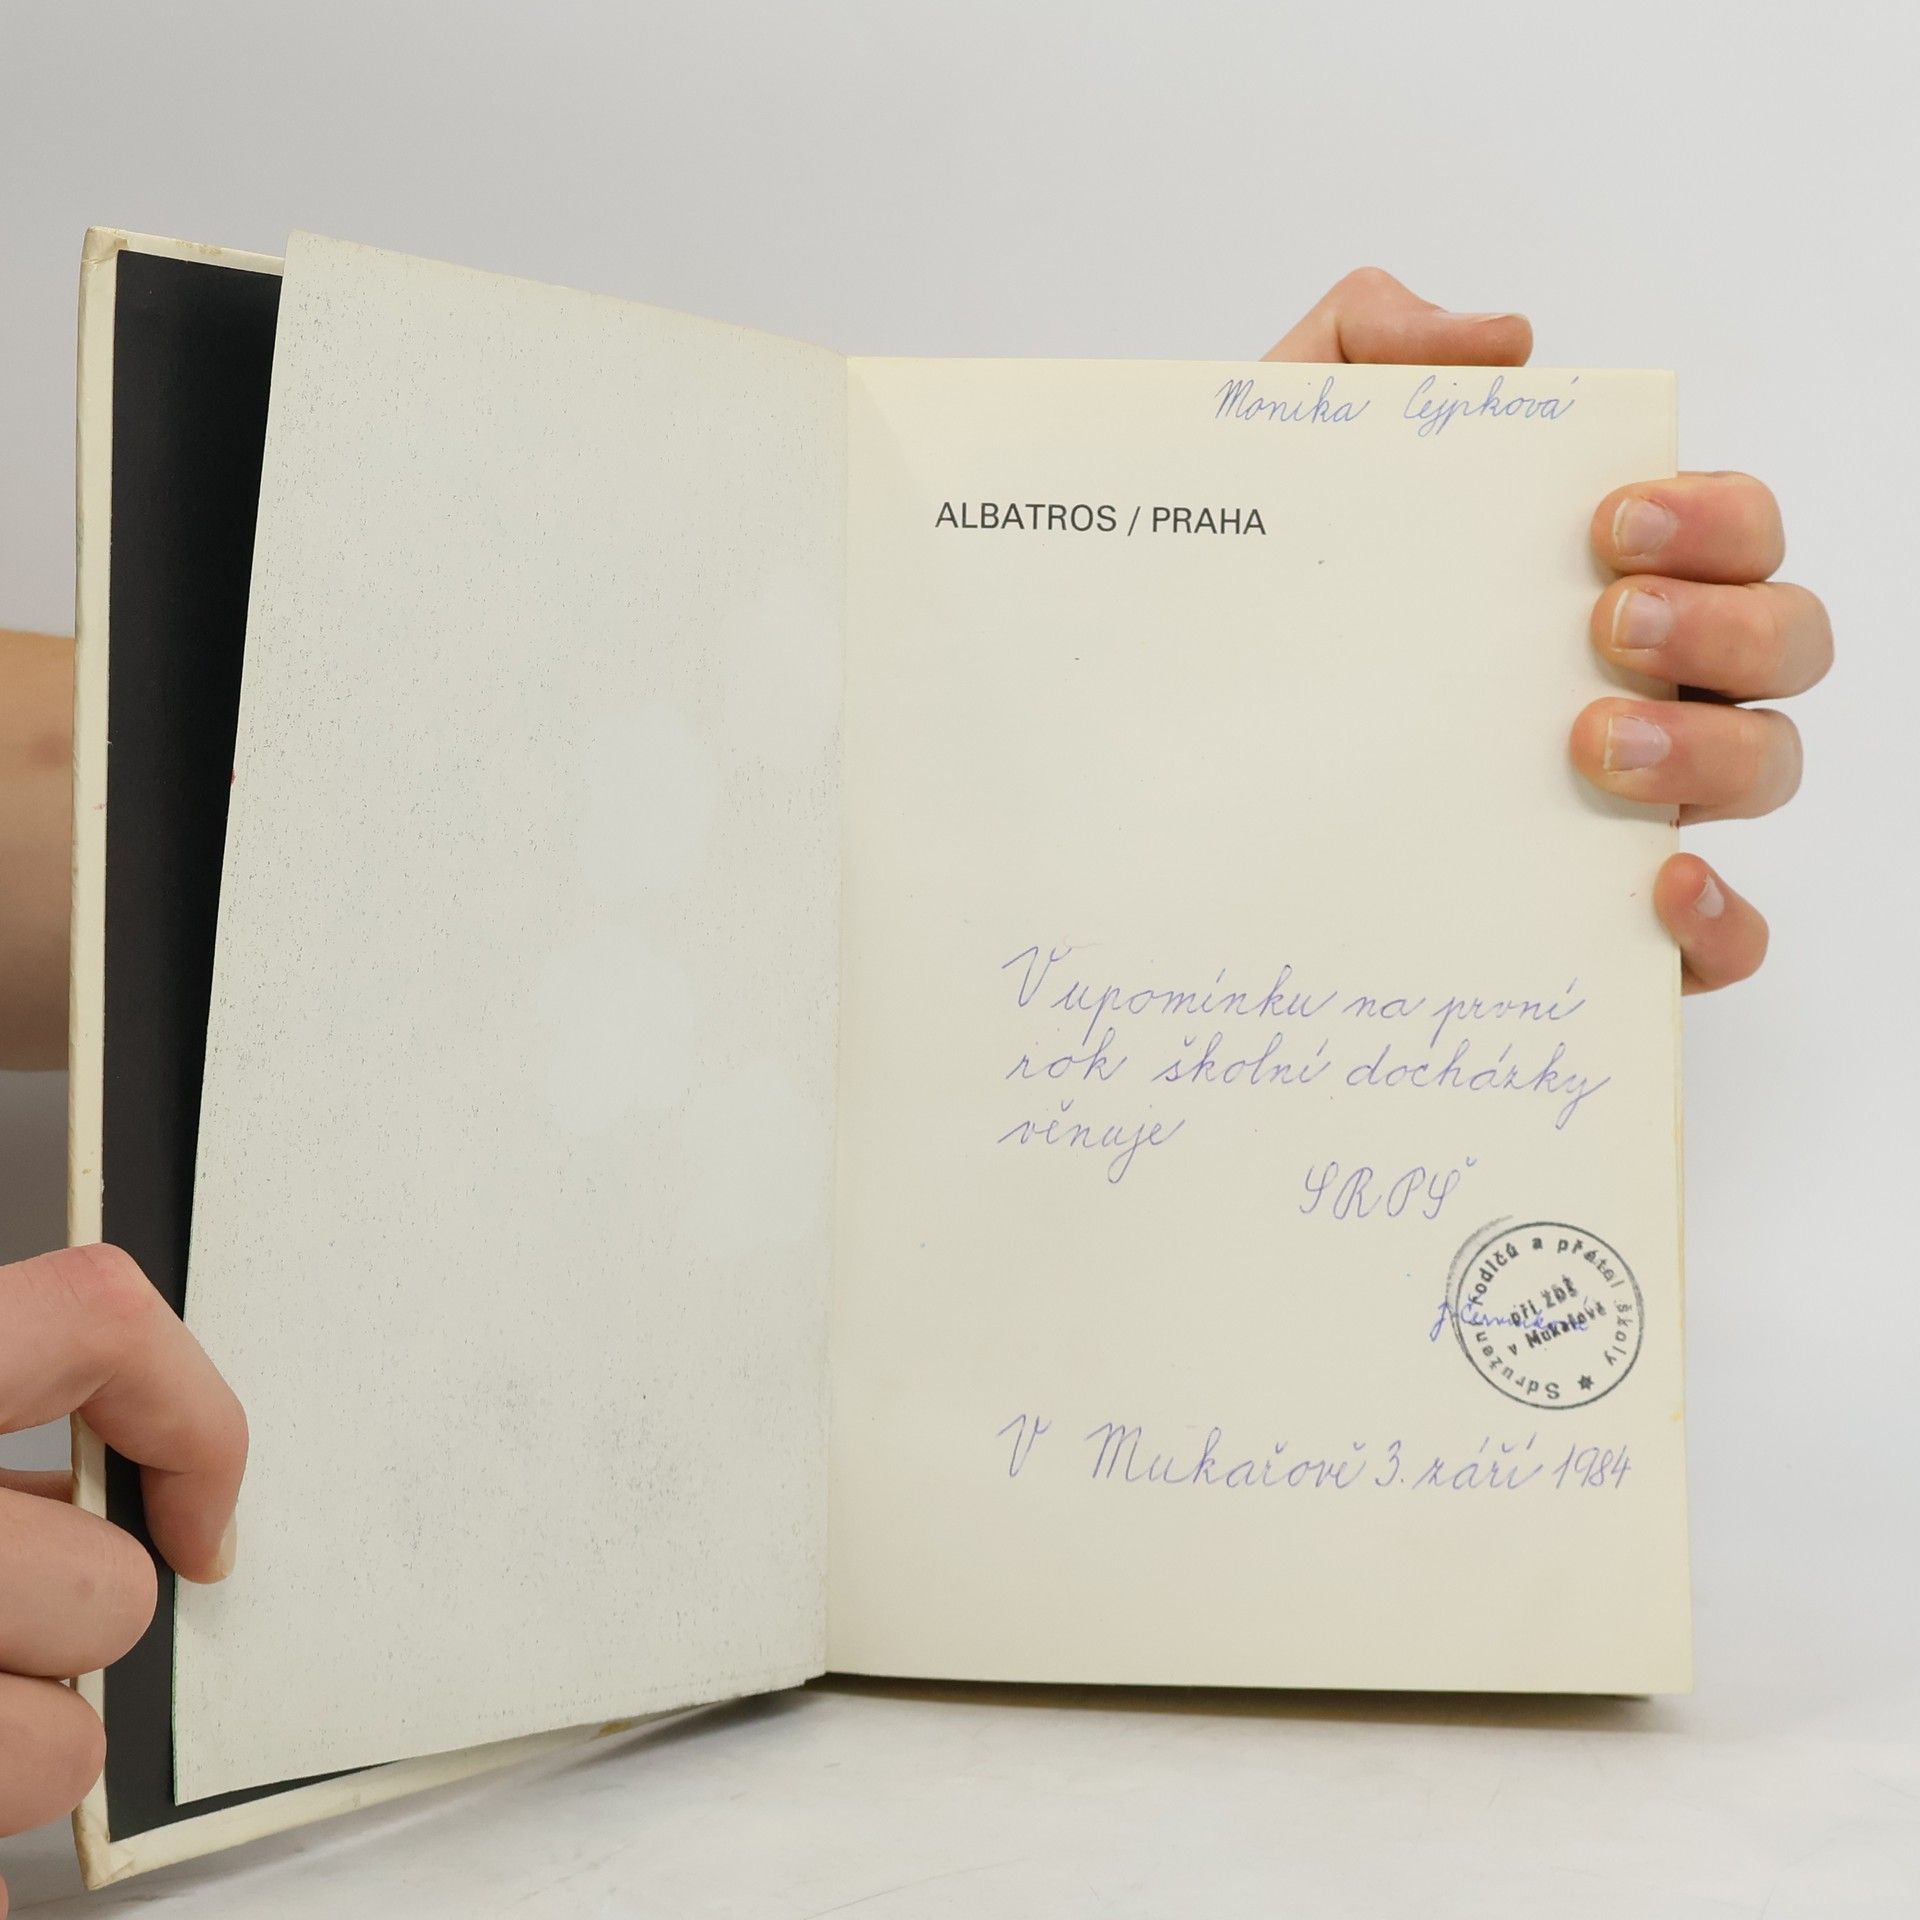 Monika Cejpková
ALBATROS / PRAHA
V upomínku na první
rok školní docházky
věnuje
SRPŠ
Sdružení rodičů a přátel školy
při ZDŠ
v Mukařově
V Mukařově 3. září 1984